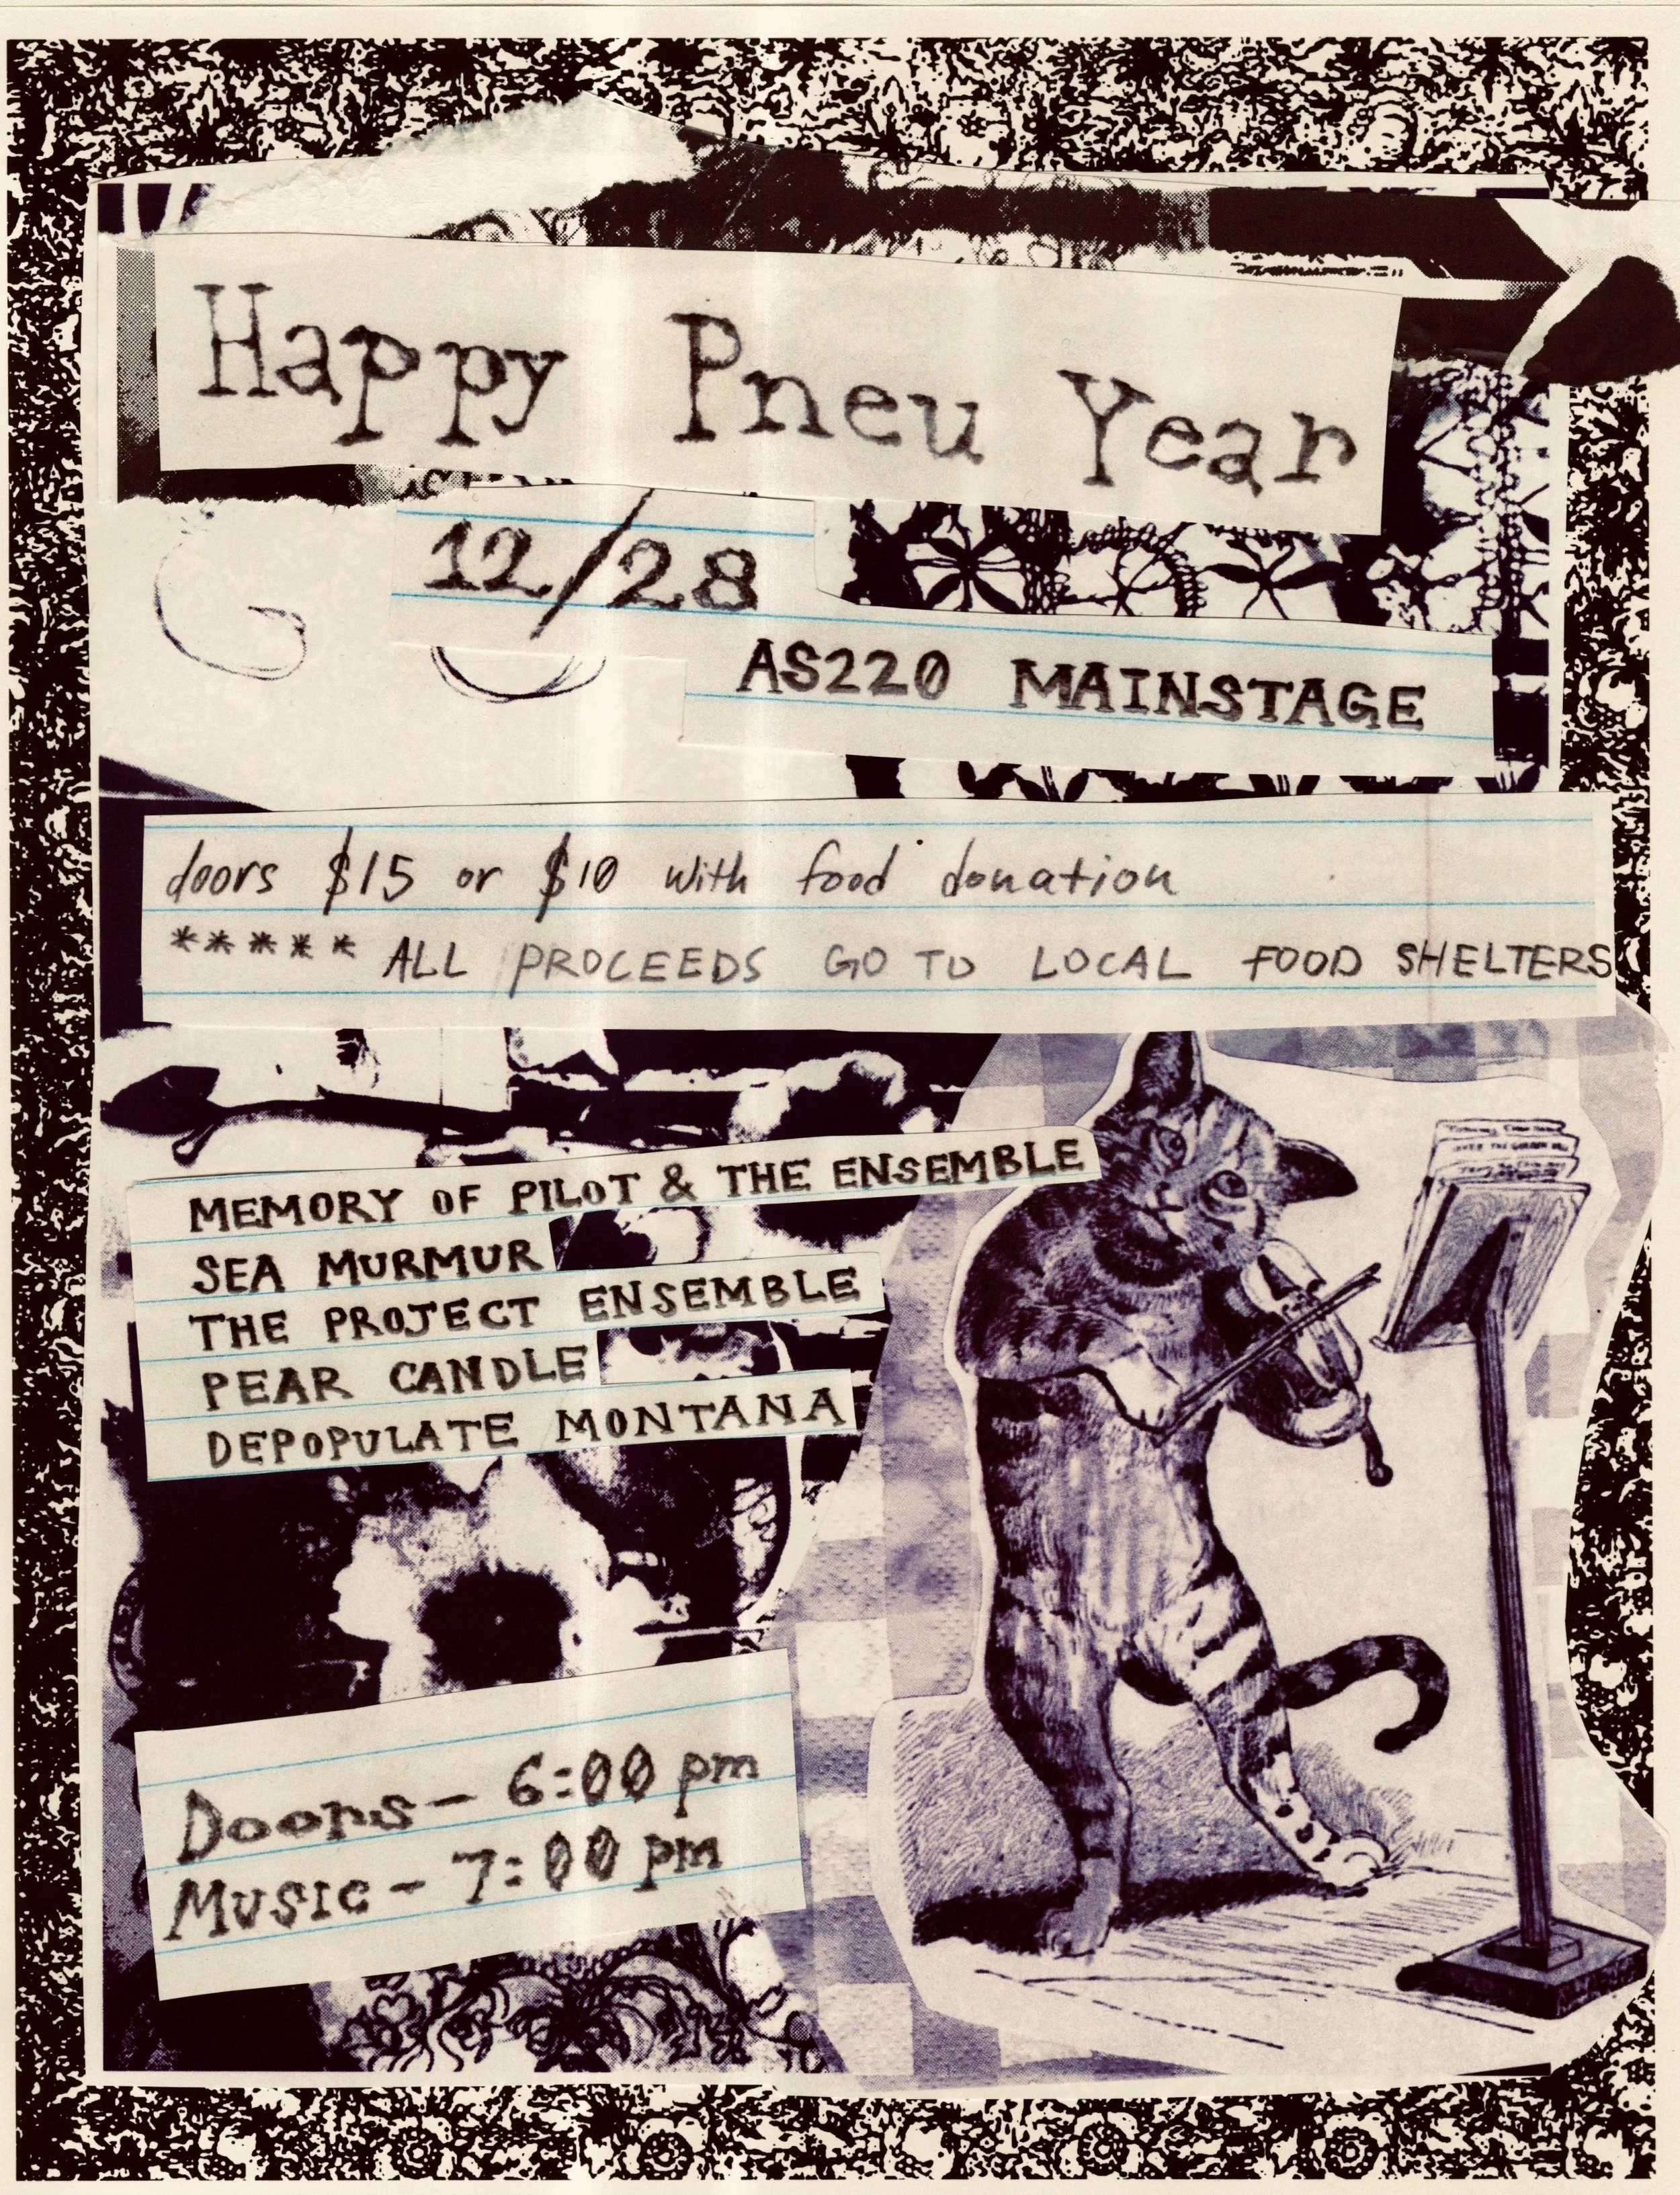 Happy Pneu Year
12/28
AS220 MAINSTAGE
doors $15 or $10 with food donation
***** ALL PROCEEDS GO TO LOCAL FOOD SHELTERS
MEMORY OF PILOT & THE ENSEMBLE
SEA MURMUR
THE PROJECT ENSEMBLE
PEAR CANDLE
DEPOPULATE MONTANA
Doors - 6:00 pm
MUSIC - 7:00 pm